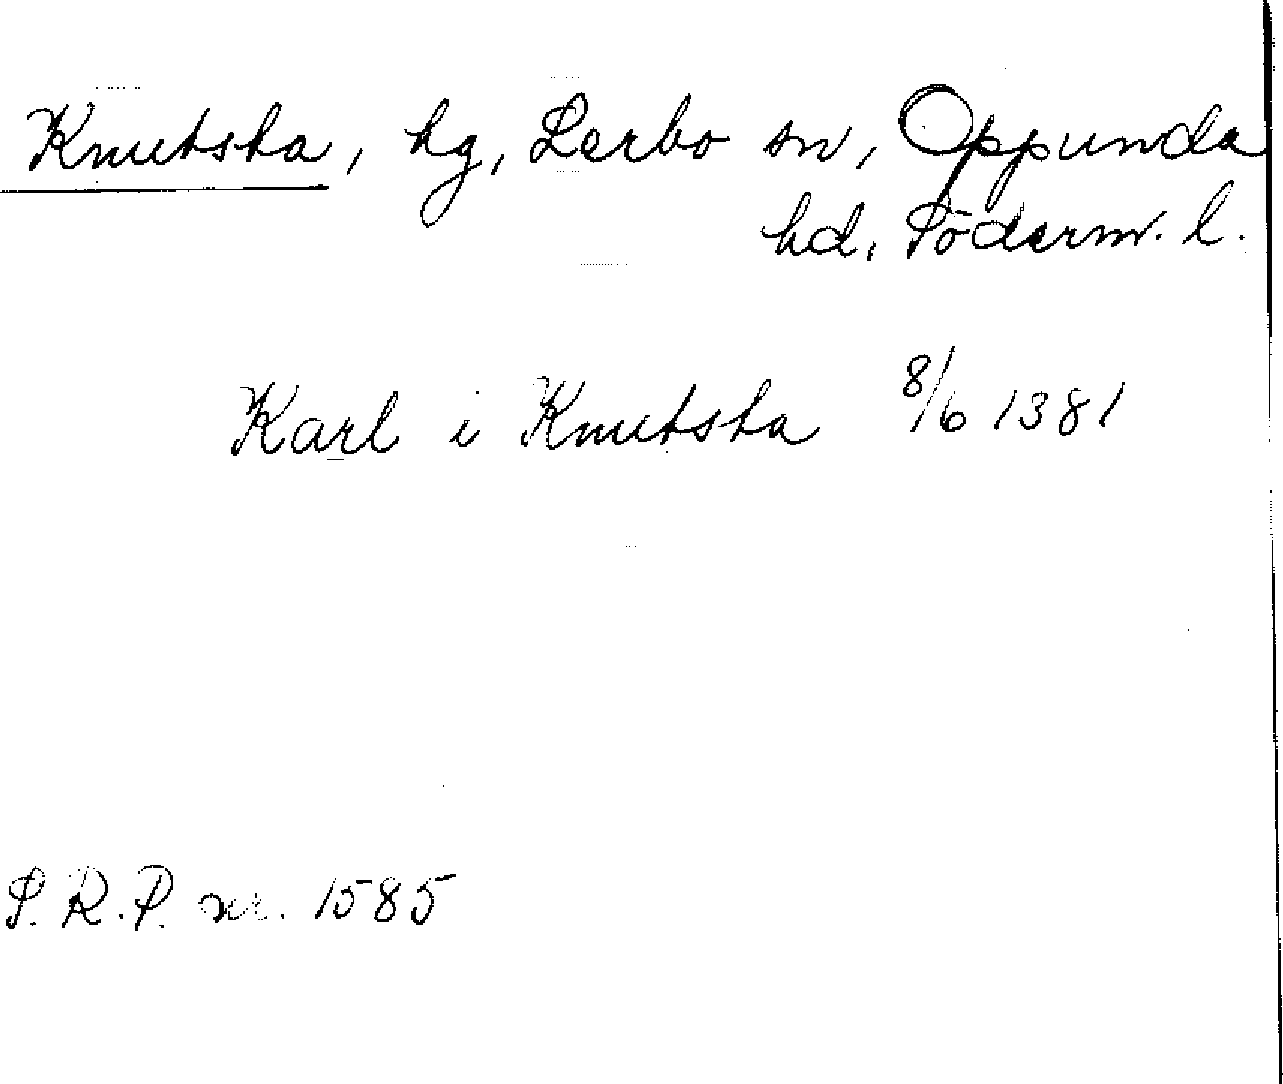 Knutsta, hg, Lerbo sn, Oppunda
hd, Söderm. l.
Karl i Knutsta 8/6 1381
S.R.P. nr. 1585